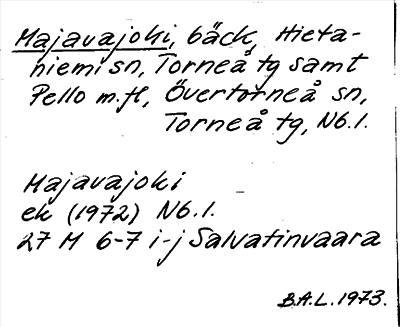 Majavajoki, bäck, Hieta-
niemi sn, Torneå tg samt
Pello m.fl, Övertorneå sn,
Torneå tg, Nb.l.
Majavajoki
ek (1972) Nb.l.
27 M 6-7 i-j Salvatinvaara
B.A.L. 1973.